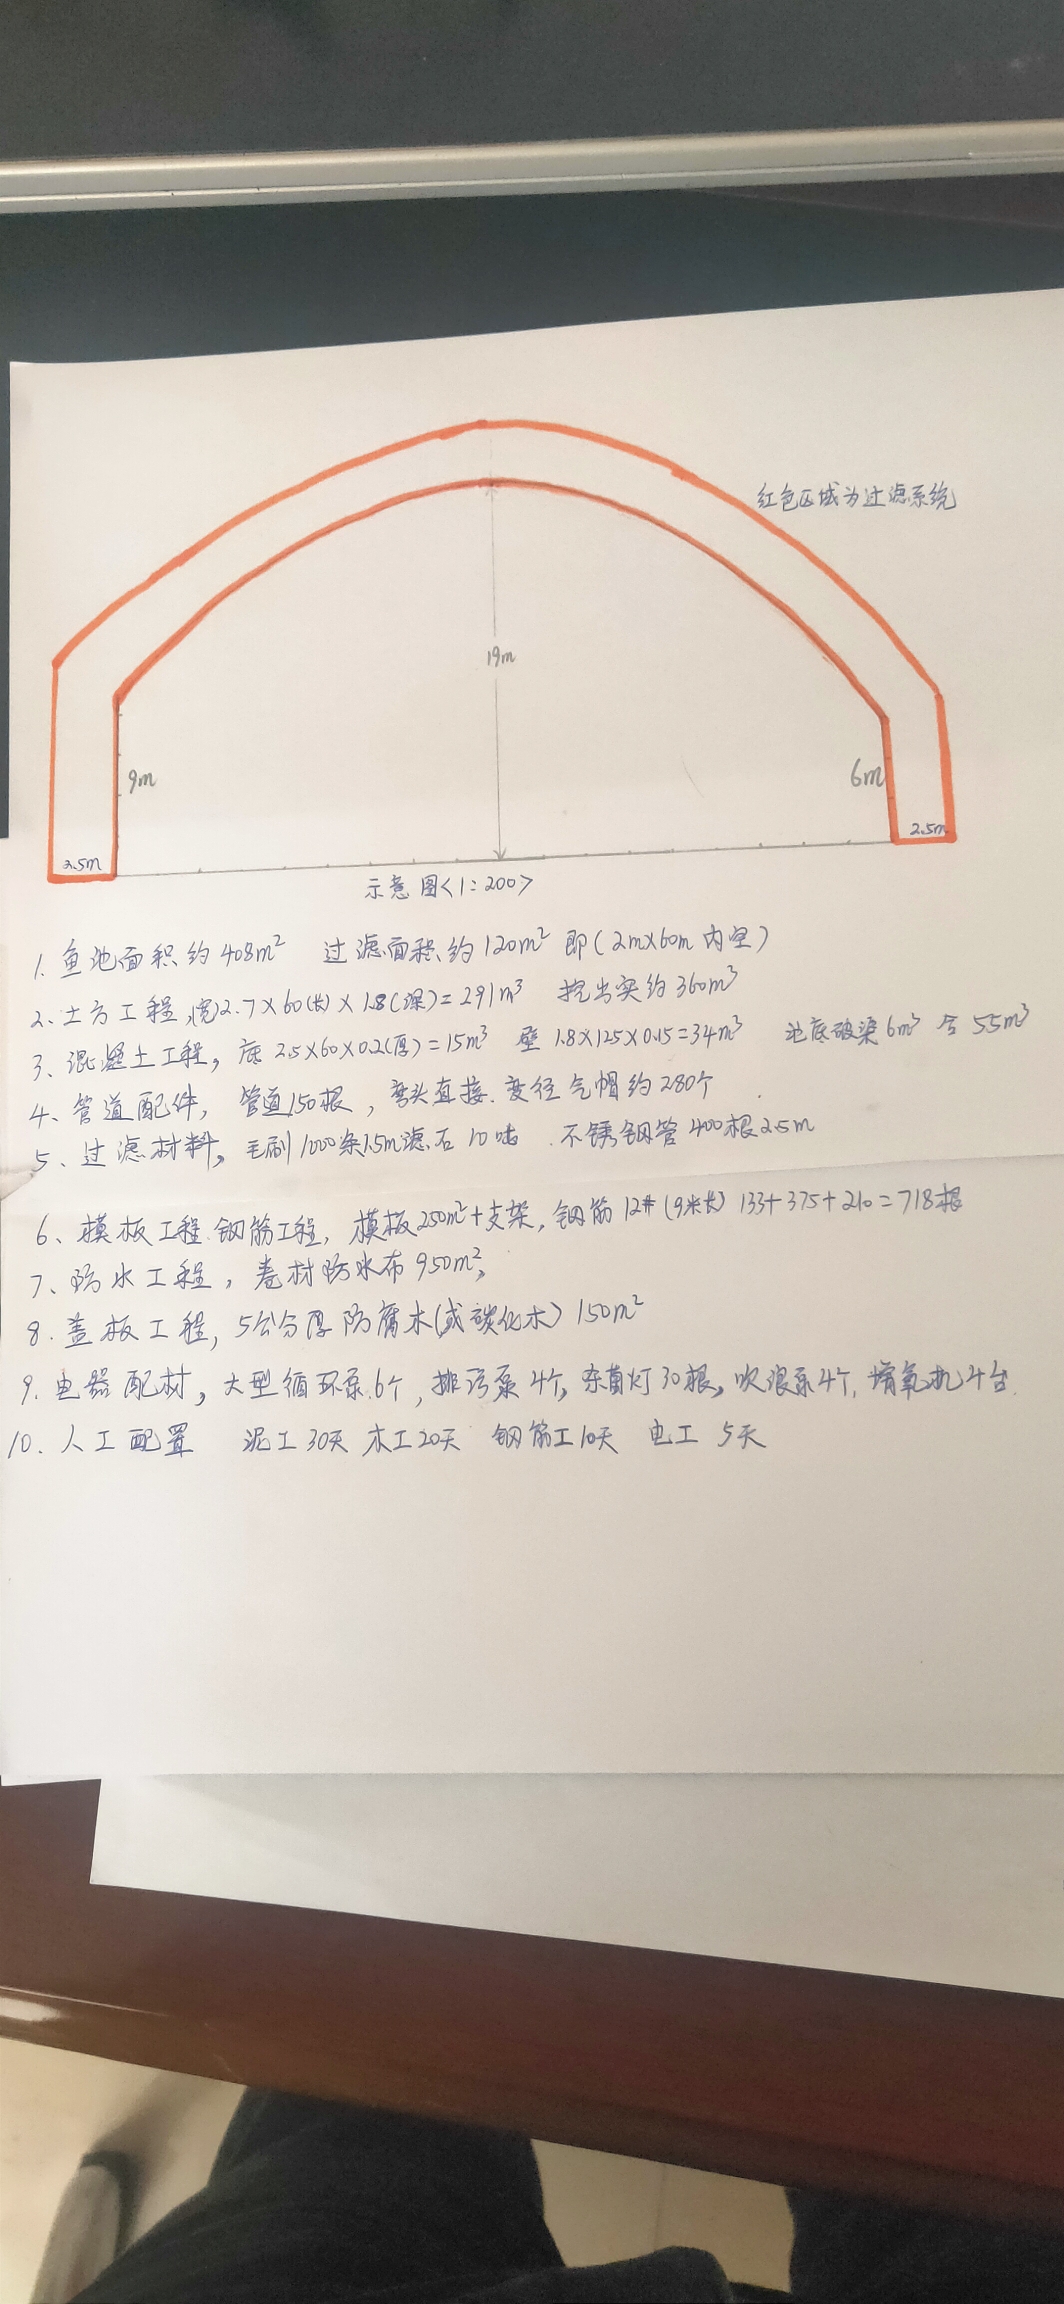 红色区域为过滤系统
19m
9m
6m
2.5m
2.5m
示意图<1:200>
1. 鱼池面积约408m² 过滤面积约120m² 即(2m×60m内空)
2、土方工程,宽2.7×60(长)×1.8(深)=291m³ 挖出实约360m³
3、混凝土工程, 底 2.5×60×0.2(厚)=15m³ 壁 1.8×125×0.15=34m³ 池底破梁6m³ 合55m³
4、管道配件, 管道150根, 弯头直接、变径气帽约280个
5、过滤材料, 毛刷1000条1.5m滤石10吨 不锈钢管400根2.5m
6、模板工程、钢筋工程, 模板250m²+支架, 钢筋12#(9米长) 133+375+210=718根
7、防水工程, 卷材防水布950m²,
8. 盖板工程, 5公分厚防腐木(或碳化木) 150m²
9. 电器配材, 大型循环泵6个, 排污泵4个, 杀菌灯30根, 吹浪泵4个, 增氧机4台
10、人工配置 泥工30天 木工20天 钢筋工10天 电工 5天